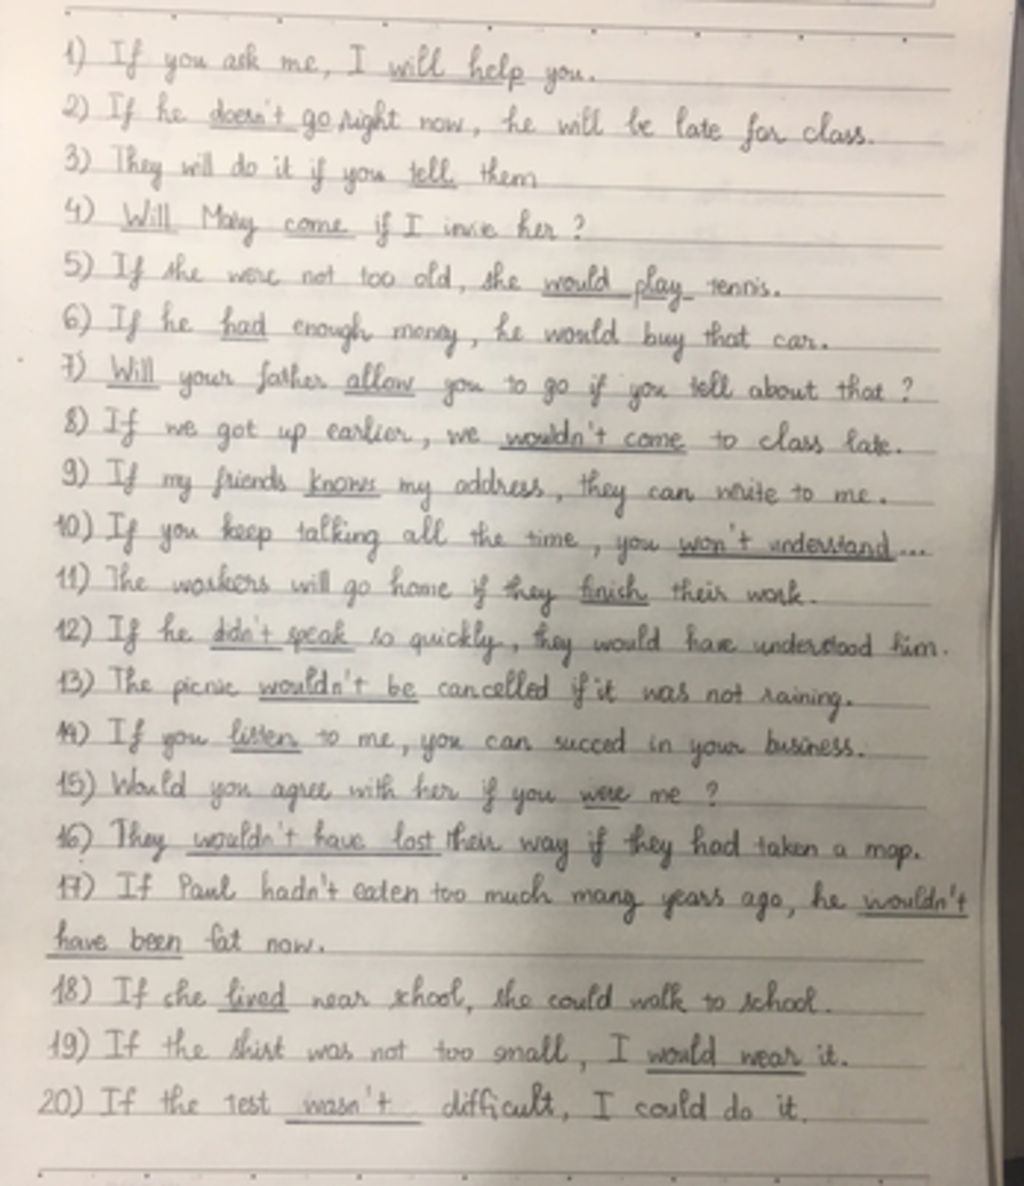 1) If you ask me, I will help you.
2) If he doesn't go right now, he will be late for class.
3) They will do it if you tell them
4) Will Mary come if I invie her ?
5) If she were not too old, she would play tennis.
6) If he had enough money, he would buy that car.
7) Will your father allow you to go if you tell about that ?
8) If we got up earlier, we wouldn't come to class late.
9) If my friends knows my address, they can write to me.
10) If you keep talking all the time, you won't understand...
11) The workers will go home if they finish their work.
12) If he didn't speak so quickly, they would have understood him.
13) The picnic wouldn't be cancelled if it was not raining.
14) If you listen to me, you can succed in your business.
15) Would you agree with her if you were me ?
16) They wouldn't have lost their way if they had taken a map.
17) If Paul hadn't eaten too much many years ago, he wouldn't
have been fat now.
18) If she lived near school, she could walk to school.
19) If the shirt was not too small, I would wear it.
20) If the test wasn't difficult, I could do it.